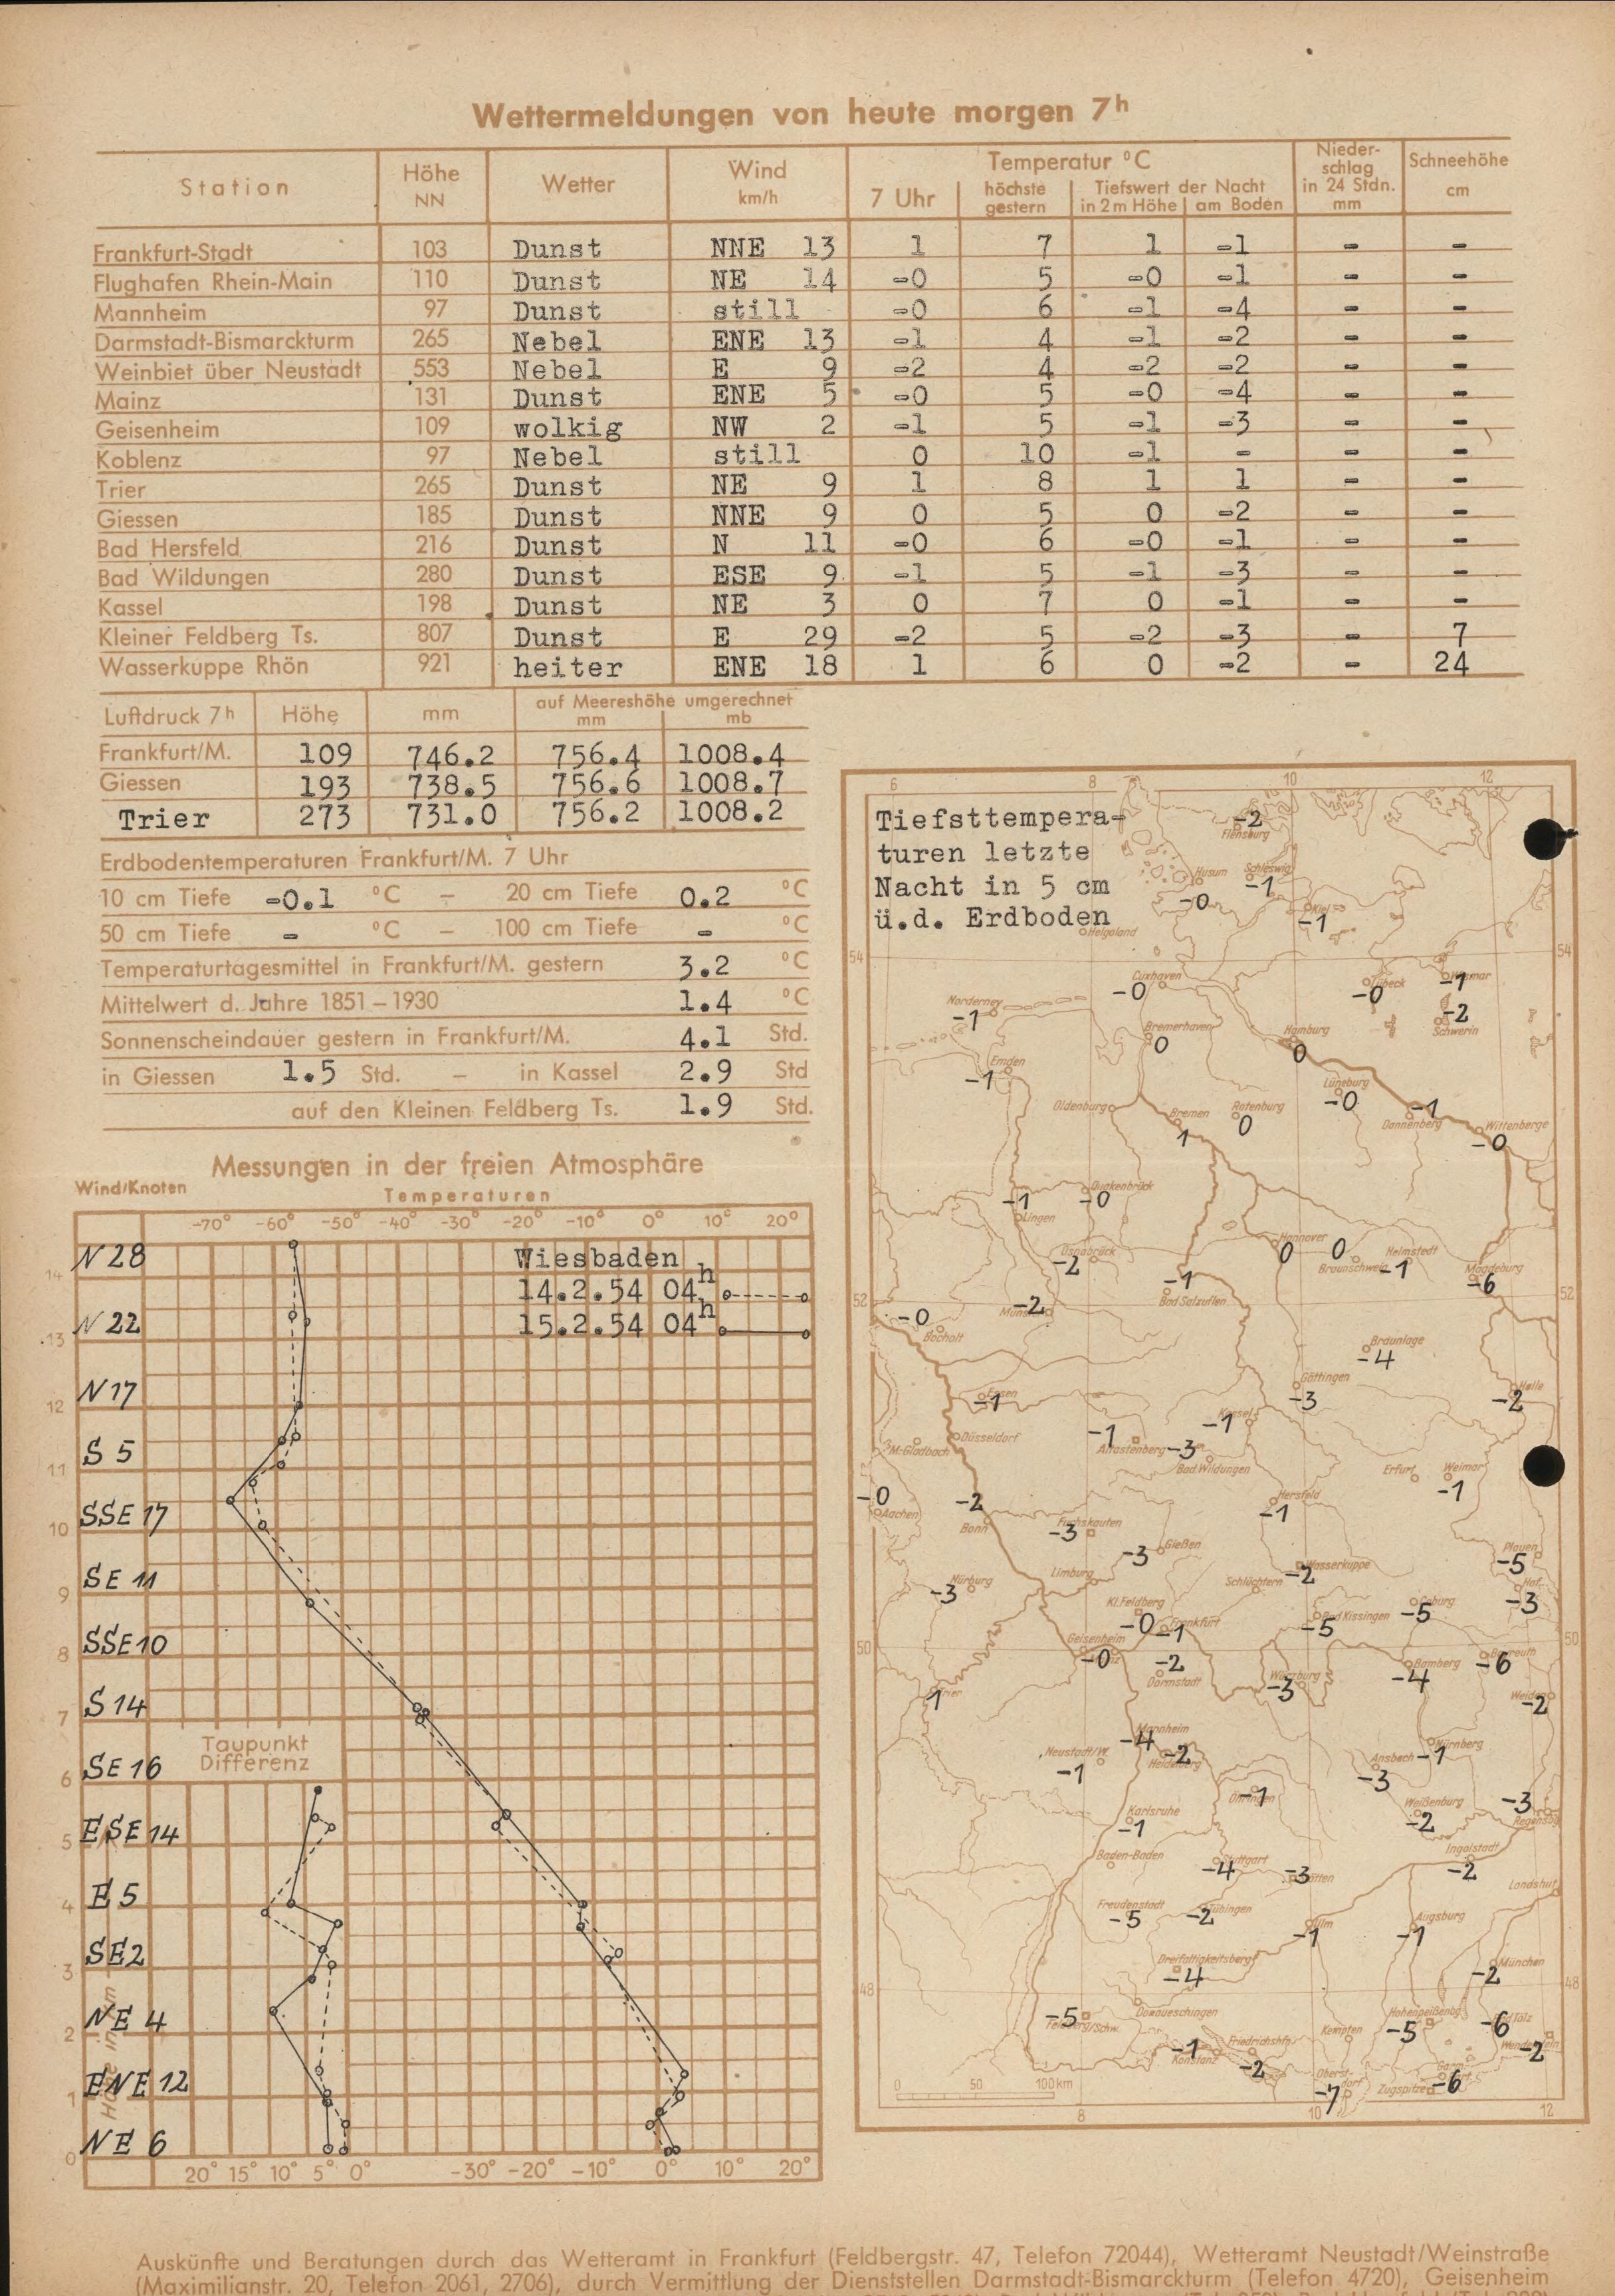 Wettermeldungen von heute morgen 7h
Station Höhe NN Wetter Wind km/h Temperatur °C Nieder-schlag in 24 Stdn. mm Schneehöhe cm
7 Uhr höchste gestern Tiefswert der Nacht in 2 m Höhe am Boden
Frankfurt-Stadt 103 Dunst NNE 13 1 7 1 -1 - -
Flughafen Rhein-Main 110 Dunst NE 14 -0 5 -0 -1 - -
Mannheim 97 Dunst still -0 6 -1 -4 - -
Darmstadt-Bismarckturm 265 Nebel ENE 13 -1 4 -1 -2 - -
Weinbiet über Neustadt 553 Nebel E 9 -2 4 -2 -2 - -
Mainz 131 Dunst ENE 5 -0 5 -0 -4 - -
Geisenheim 109 wolkig NW 2 -1 5 -1 -3 - -
Koblenz 97 Nebel still 0 10 -1 - - -
Trier 265 Dunst NE 9 1 8 1 1 - -
Giessen 185 Dunst NNE 9 0 5 0 -2 - -
Bad Hersfeld 216 Dunst N 11 -0 6 -0 -1 - -
Bad Wildungen 280 Dunst ESE 9 -1 5 -1 -3 - -
Kassel 198 Dunst NE 3 0 7 0 -1 - -
Kleiner Feldberg Ts. 807 Dunst E 29 -2 5 -2 -3 - 7
Wasserkuppe Rhön 921 heiter ENE 18 1 6 0 -2 - 24
Luftdruck 7h Höhe mm auf Meereshöhe umgerechnet
mm mb
Frankfurt/M. 109 746.2 756.4 1008.4
Giessen 193 738.5 756.6 1008.7
Trier 273 731.0 756.2 1008.2
Erdbodentemperaturen Frankfurt/M. 7 Uhr
10 cm Tiefe -0.1 °C – 20 cm Tiefe 0.2 °C
50 cm Tiefe - °C – 100 cm Tiefe - °C
Temperaturtagesmittel in Frankfurt/M. gestern 3.2 °C
Mittelwert d. Jahre 1851–1930 1.4 °C
Sonnenscheindauer gestern in Frankfurt/M. 4.1 Std.
in Giessen 1.5 Std. – in Kassel 2.9 Std
auf den Kleinen Feldberg Ts. 1.9 Std.
Messungen in der freien Atmosphäre
Wind/Knoten
Temperaturen
-70° -60° -50° -40° -30° -20° -10° 0° 10° 20°
N 28
Wiesbaden
14
14.2.54 04h
N 22
15.2.54 04h
13
N 17
12
S 5
11
SSE 17
10
SE 11
9
SSE 10
8
S 14
7
Taupunkt
Differenz
SE 16
6
ESE 14
5
E 5
4
SE 2
3
NE 4
2
ENE 12
1
NE 6
0
Höhe in km
20° 15° 10° 5° 0° -30° -20° -10° 0° 10° 20°
6 8 10 12
Tiefsttempera-
turen letzte
Nacht in 5 cm
ü.d. Erdboden
-2 Flensburg
Husum -0
Schleswig -1
Kiel -1
Helgoland
54 54
Cuxhaven -0
Lübeck -0
Wismar -1
Norderney -1
Schwerin -2
Bremerhaven 0
Hamburg 0
Emden -1
Lüneburg -0
Oldenburg
Bremen 1
Rotenburg 0
Dannenberg -1
Wittenberge -0
Lingen -1
Quakenbrück -0
Osnabrück -2
Hannover 0
Braunschweig 0
Helmstedt -1
Magdeburg -6
Bad Salzuflen -1
52 52
Bocholt -0
Münster -2
Braunlage -4
Göttingen -3
Halle -2
Essen -1
Kassel -1
M.-Gladbach
Düsseldorf
Altastenberg -1
Bad Wildungen -3
Erfurt
Weimar -1
Aachen -0
Bonn -2
Hersfeld -1
Fuchskauten -3
Gießen -3
Plauen -5
Limburg
Wasserkuppe -2
Schlüchtern
Nürburg -3
Hof -3
Kl. Feldberg -0
Frankfurt -1
Bad Kissingen -5
Coburg -5
50 50
Geisenheim -0
Darmstadt -2
Würzburg -3
Bamberg -4
Bayreuth -6
Trier 1
Weiden -2
Mannheim -4
Heidelberg -2
Neustadt/W. -1
Ansbach -3
Nürnberg -1
Öhringen -1
Karlsruhe -1
Weißenburg -2
Regensbg -3
Baden-Baden
Stuttgart -4
-3
Ingolstadt -2
Landshut
Freudenstadt -5
Tübingen -2
Ulm -1
Augsburg -1
Dreifaltigkeitsberg -4
München -2
48 48
Feldberg/Schw. -5
Donaueschingen
Konstanz -1
Friedrichshfn. -2
Kempten
Hohenpeißenbg. -5
Bad Tölz -6
Wendelstein -2
Oberst-dorf -7
Zugspitze
Garm. -6
0 50 100km
8 10 12
Auskünfte und Beratungen durch das Wetteramt in Frankfurt (Feldbergstr. 47, Telefon 72044), Wetteramt Neustadt/Weinstraße
(Maximilianstr. 20, Telefon 2061, 2706), durch Vermittlung der Dienststellen Darmstadt-Bismarckturm (Telefon 4720), Geisenheim